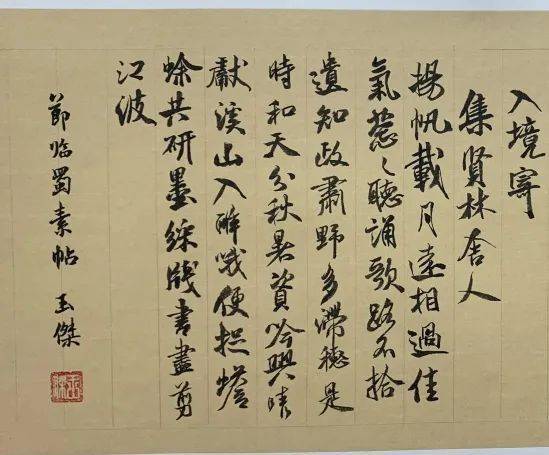 入境寄
集賢林舍人
揚帆載月遠相過佳
氣蔥〻聽誦歌路不拾
遺知政肅野多滯穗是
時和天分秋暑資吟興晴
獻溪山入醉哦便捉蟾
蜍共研墨綵牋書盡剪
江波
節臨蜀素帖 玉傑